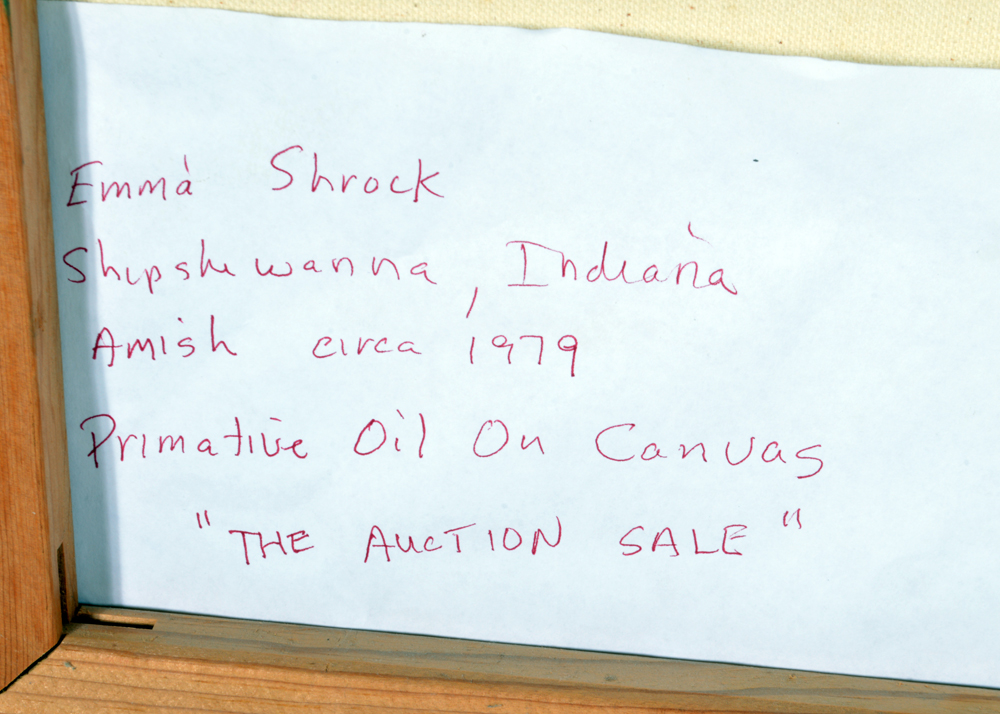 Emma Shrock
Shipshewanna, Indiana
Amish circa 1979
Primative Oil On Canvas
"THE AUCTION SALE"